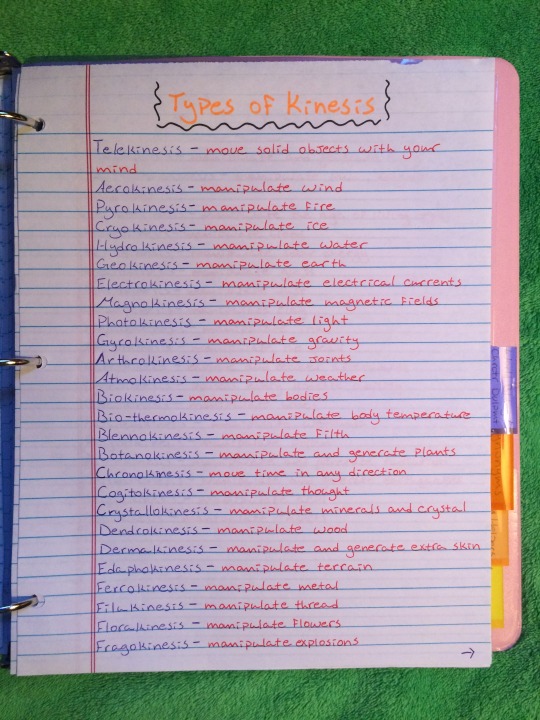 Types of Kinesis
Telekinesis - move solid objects with your
mind
Aerokinesis - manipulate wind
Pyrokinesis - manipulate fire
Cryokinesis - manipulate ice
Hydrokinesis - manipulate water
Geokinesis - manipulate earth
Electrokinesis - manipulate electrical currents
Magnokinesis - manipulate magnetic fields
Photokinesis - manipulate light
Gyrokinesis - manipulate gravity
Arthrokinesis - manipulate joints
Atmokinesis - manipulate weather
Biokinesis - manipulate bodies
Bio-thermokinesis - manipulate body temperature
Blennokinesis - manipulate filth
Botanokinesis - manipulate and generate plants
Chronokinesis - move time in any direction
Cogitokinesis - manipulate thought
Crystallokinesis - manipulate minerals and crystal
Dendrokinesis - manipulate wood
Dermakinesis - manipulate and generate extra skin
Edaphokinesis - manipulate terrain
Ferrokinesis - manipulate metal
Filukinesis - manipulate thread
Florakinesis - manipulate flowers
Fragokinesis - manipulate explosions
→